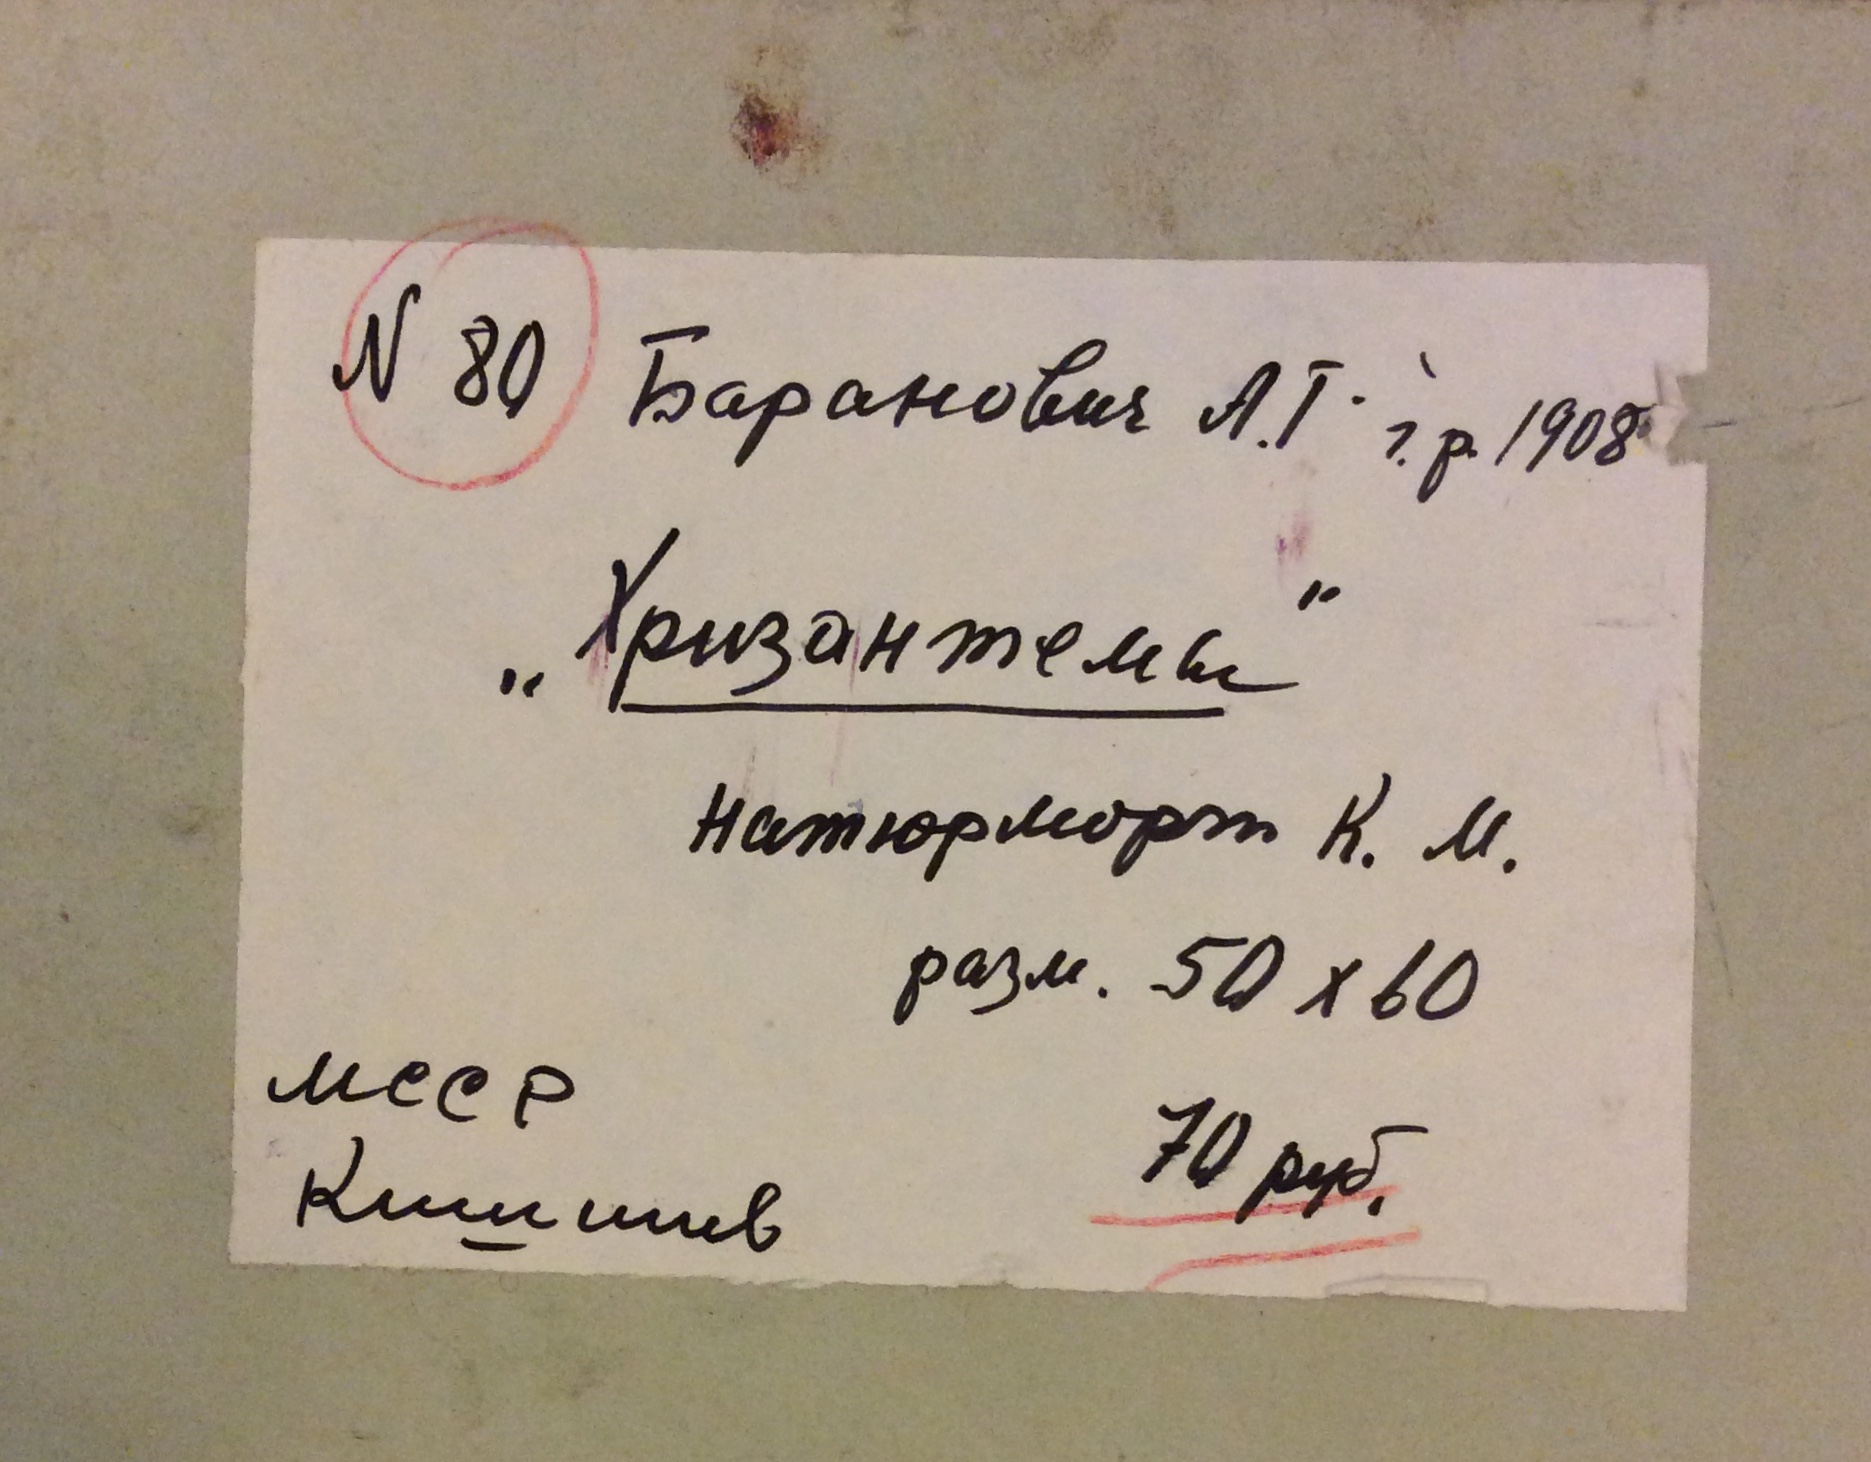 N 80 Баранович А.Г. г.р. 1908
„Хризантемы"
натюрморт К. М.
разм. 50 х 60
МССР
70 руб.
Кишинев